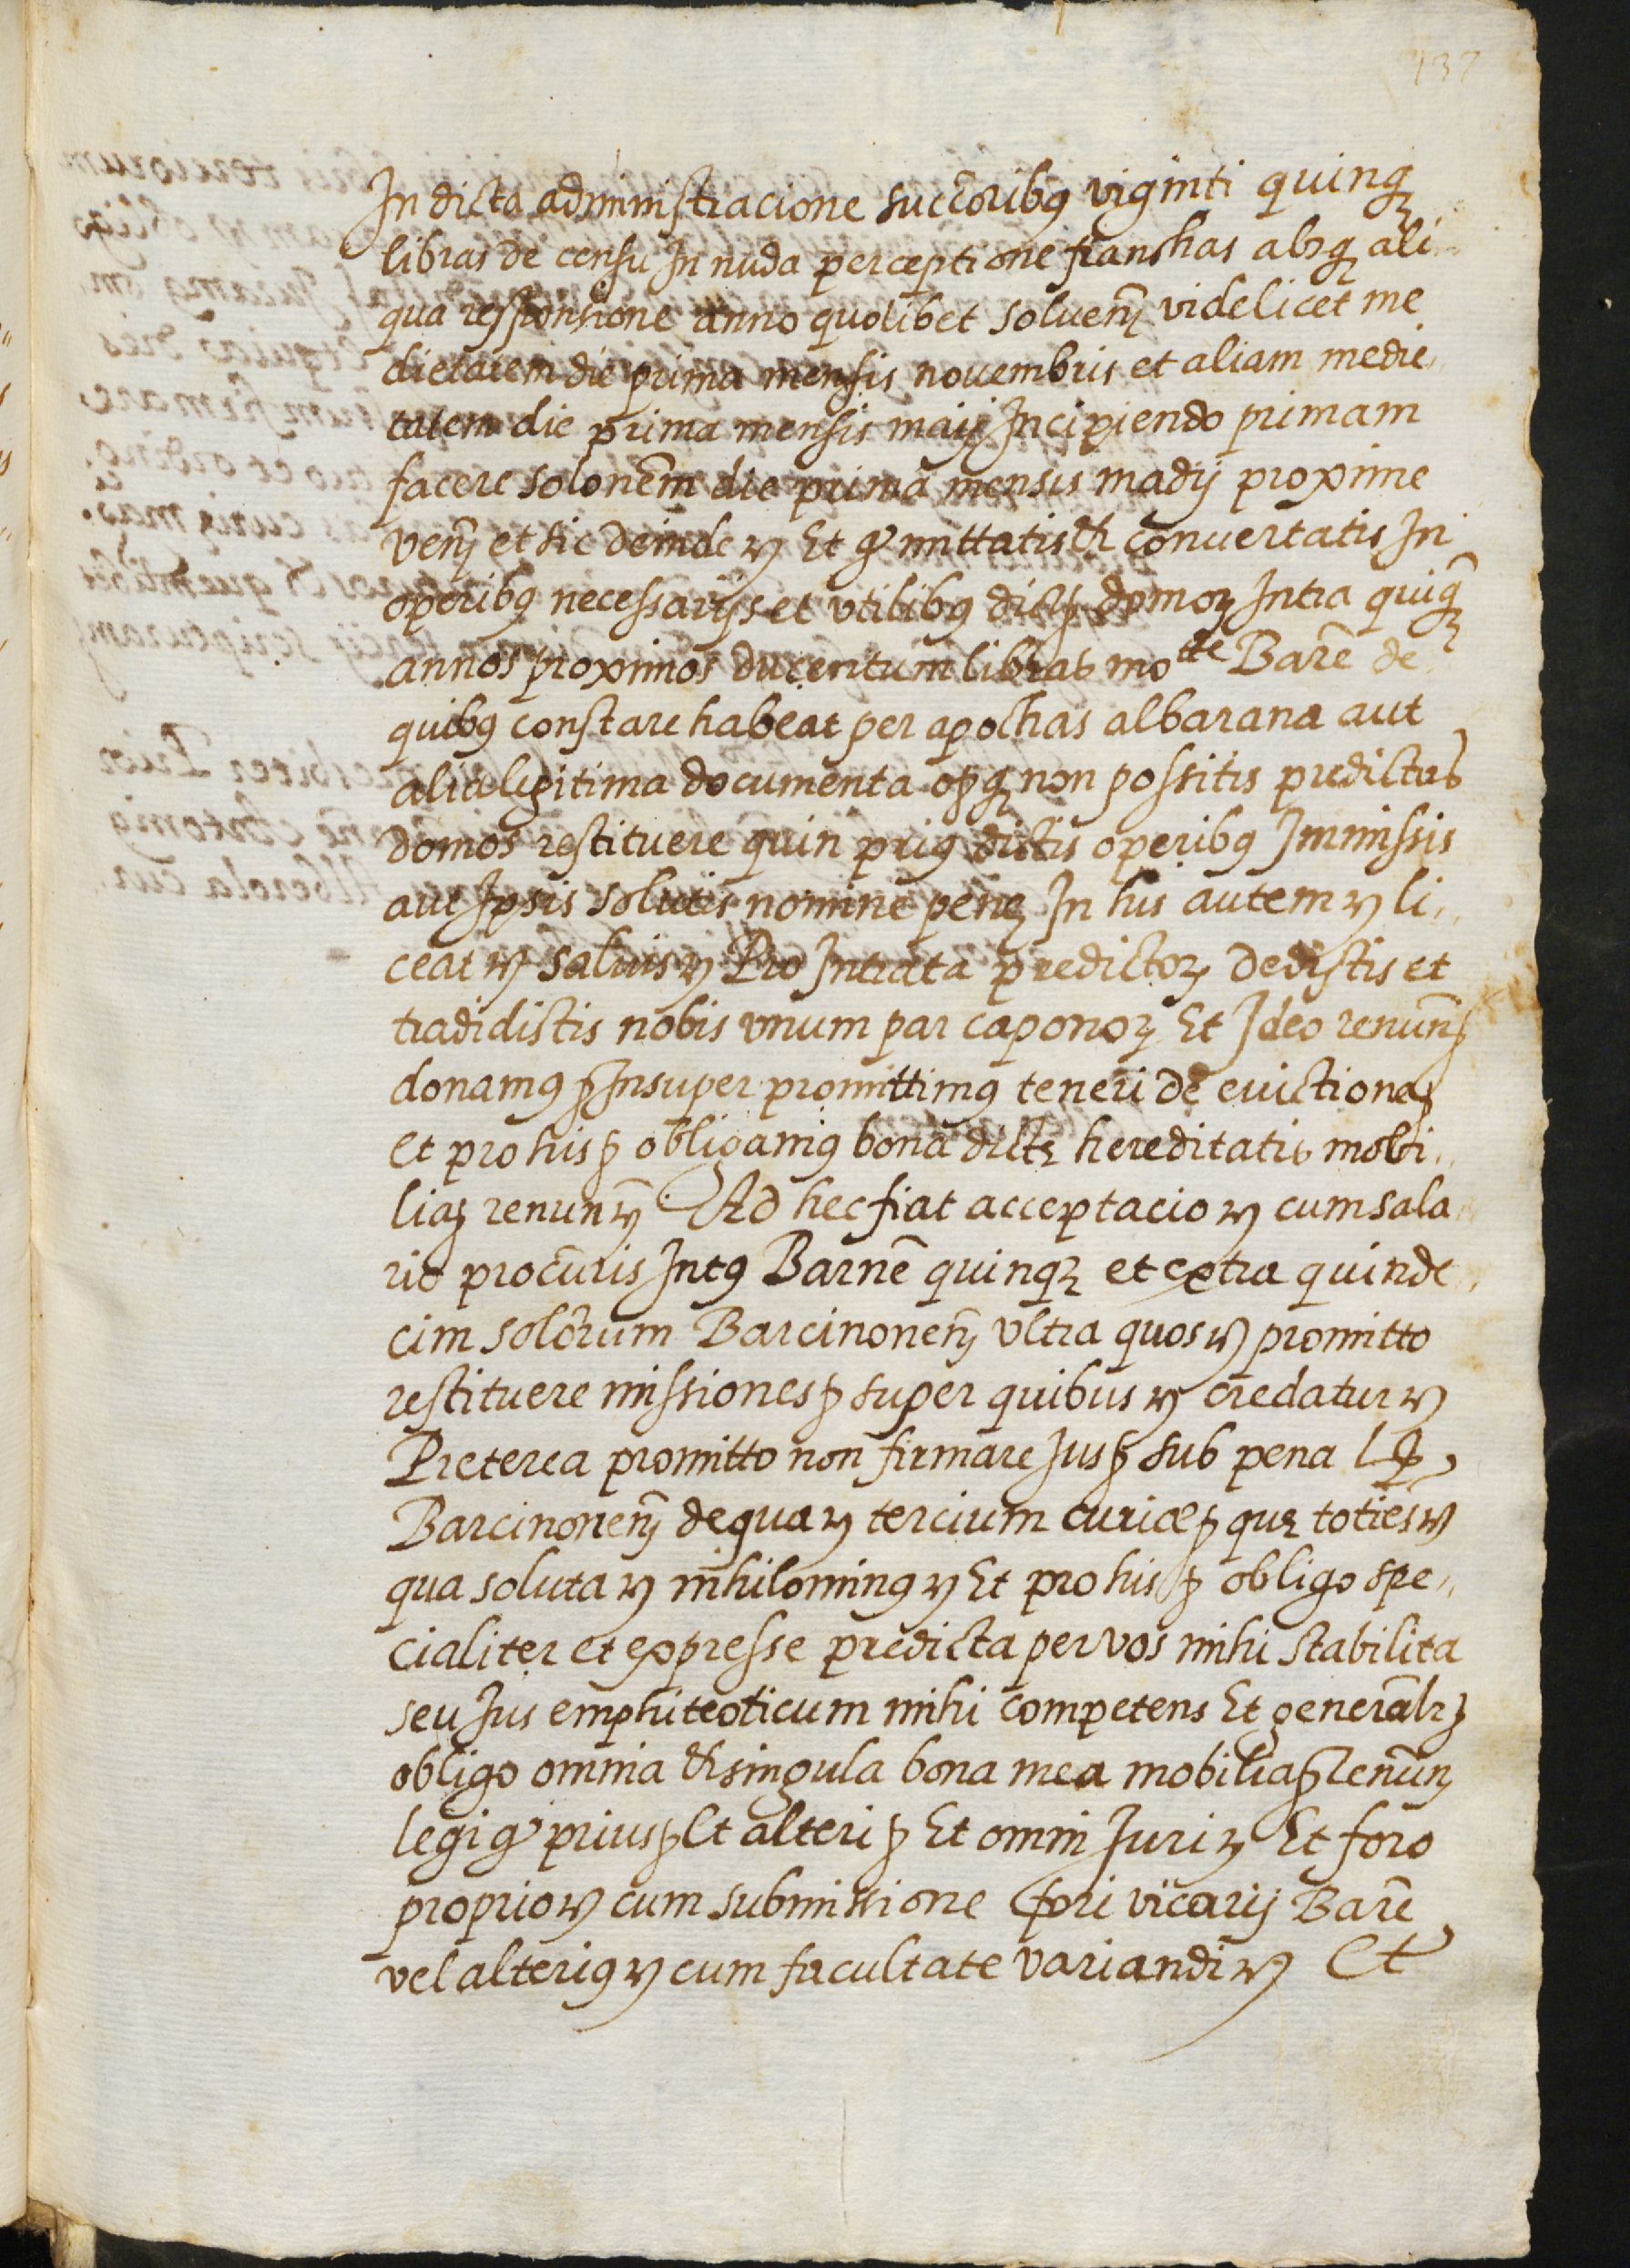 137
In dicta administracione succ̃oribꝯ viginti quinqꝫ
libras de censu In nuda perceptione franchas absqꝫ ali
qua responsione anno quolibet soluen̄ videlicet me
dietatem die prima mensis nouembris et aliam medie
tatem die prima mensis maij Incipiendo primam
facere solonem̄ die prima mensis madij proxime
ven̄ et sic deinde ꝛc Et ꝙ mittatis & conuertatis In
operibꝯ necessarijs et vtilibꝯ dictꝝ domoꝝ Intra quiqꝫ̄
annos proximos ducentum libras mo^(te) Barc̄e de
quibꝯ constare habeat per apochas albarana aut
alia legitima documenta qꝫ non possitis predictas
domos restituere quin priꝯ dictis operibꝯ Immissis
aut Ipsis solutis nomine penę In his autem ꝛc li
ceat ꝛc saluis ꝛc Pro Intrata predictoꝝ dedistis et
tradidistis nobis vnum par caponoꝝ Et Ideo renun̄ꝫ
donamꝯ ꝫ Insuper promittimꝯ teneri de euictione ꝫ
et pro his ꝫ obligamꝯ bona dictę hereditatis mobi
lia ꝫ renun̄ ꝛc Ad hec fiat acceptacio ꝛc cum sala
rio procūris Intꝯ Barnē quinqꝫ et extra quinde
cim solōrum Barcinonen̄ vltra quos ꝛc promitto
restituere missiones ꝫ super quibus ꝛc credatur ꝛc
Preterea promitto non firmare Jus ꝫ sub pena
Barcinonen̄ de qua ꝛc tercium curiæ ꝫ quę toties ꝛc
qua soluta ꝛc nihilominꝯ ꝛc Et pro his ꝫ obligo spe
cialiter et expresse predicta per vos mihi stabilita
seu Jus emphiteoticum mihi competens Et generalr̄ ꝫ
obligo omnia & singula bona mea mobilia ꝫ renun̄
legi ꝙ prius ꝫ Et alteri ꝫ Et omni Juri ꝛc Et foro
proprio ꝛc cum submissione fori vicarij Barc̄e
vel alteriꝯ ꝛc cum facultate variandi ꝛc Et